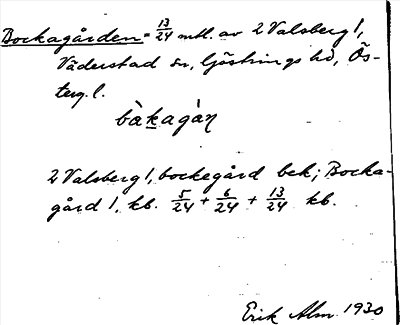 Bockagården = 13/24 mtl. av 2 Valsberg 1,
Väderstad sn, Göstrings hd, Ös-
terg. l.
bàkagàn
2 Valsberg 1, bockegård bek; Bocka-
gård 1, kb. 5/24 + 6/24 + 13/24 kb.
Erik Alm 1930